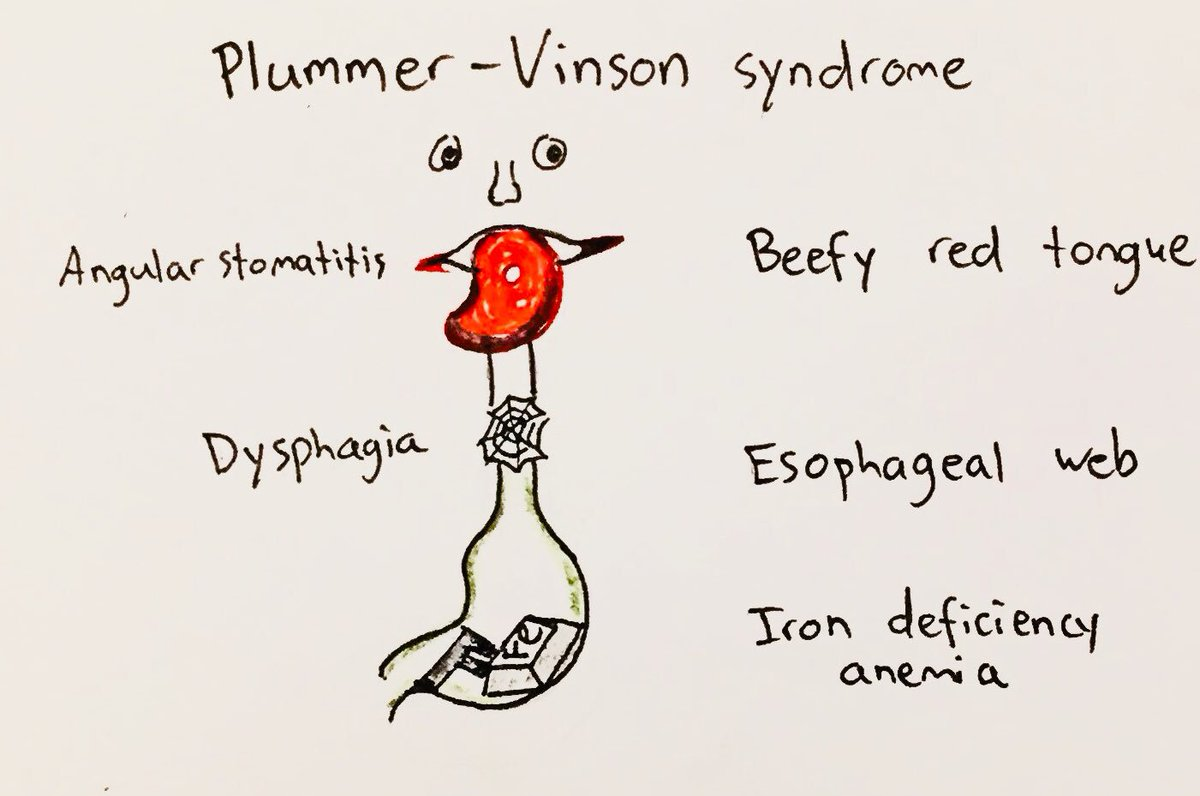 Plummer-Vinson syndrome
Angular stomatitis
Beefy red tongue
Dysphagia
Esophageal web
Iron deficiency
anemia
Fe
Fe